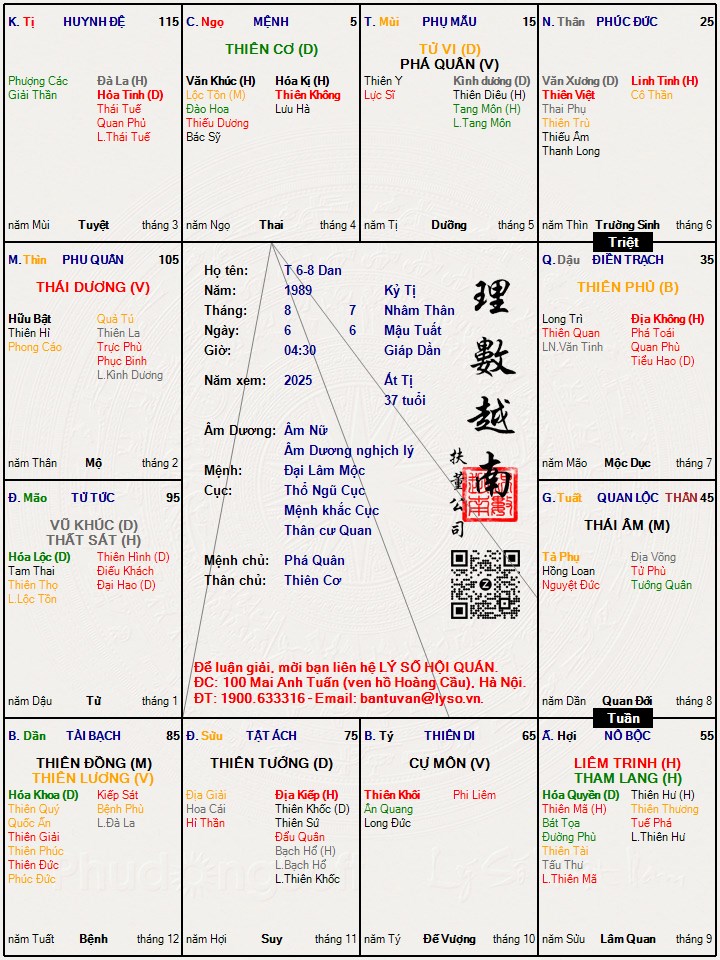 K. Tị HUYNH ĐỆ 115
Phượng Các
Giải Thần
Đà La (H)
Hỏa Tinh (D)
Thái Tuế
Quan Phủ
L.Thái Tuế
năm Mùi Tuyệt tháng 3
C. Ngọ MỆNH 5
THIÊN CƠ (D)
Văn Khúc (H)
Lộc Tồn (M)
Đào Hoa
Thiếu Dương
Bác Sỹ
Hóa Kị (H)
Thiên Không
Lưu Hà
năm Ngọ Thai tháng 4
T. Mùi PHỤ MẪU 15
TỬ VI (D)
PHÁ QUÂN (V)
Thiên Y
Lực Sĩ
Kình dương (D)
Thiên Diêu (H)
Tang Môn (H)
L.Tang Môn
năm Tị Dưỡng tháng 5
N. Thân PHÚC ĐỨC 25
Văn Xương (D)
Thiên Việt
Thai Phụ
Thiên Trù
Thiếu Âm
Thanh Long
Linh Tinh (H)
Cô Thần
năm Thìn Trường Sinh tháng 6
Triệt
M. Thìn PHU QUÂN 105
THÁI DƯƠNG (V)
Hữu Bật
Thiên Hỉ
Phong Cáo
Quả Tú
Thiên La
Trực Phù
Phục Binh
L.Kình Dương
năm Thân Mộ tháng 2
Họ tên: T 6-8 Dan
Năm: 1989 Kỷ Tị
Tháng: 8 7 Nhâm Thân
Ngày: 6 6 Mậu Tuất
Giờ: 04:30 Giáp Dần
Năm xem: 2025 Ất Tị
37 tuổi
Âm Dương: Âm Nữ
Âm Dương nghịch lý
Mệnh: Đại Lâm Mộc
Cục: Thổ Ngũ Cục
Mệnh khắc Cục
Thân cư Quan
Mệnh chủ: Phá Quân
Thân chủ: Thiên Cơ
理數越南
扶董公司
Z
Để luận giải, mời bạn liên hệ LÝ SỐ HỘI QUÁN.
ĐC: 100 Mai Anh Tuấn (ven hồ Hoàng Cầu), Hà Nội.
ĐT: 1900.633316 - Email: bantuvan@lyso.vn.
Q. Dậu ĐIỀN TRẠCH 35
THIÊN PHỦ (B)
Long Trì
Thiên Quan
LN.Văn Tinh
Địa Không (H)
Phá Toái
Quan Phù
Tiểu Hao (D)
năm Mão Mộc Dục tháng 7
Đ. Mão TỬ TỨC 95
VŨ KHÚC (D)
THẤT SÁT (H)
Hóa Lộc (D)
Tam Thai
Thiên Thọ
L.Lộc Tồn
Thiên Hình (D)
Điếu Khách
Đại Hao (D)
năm Dậu Tử tháng 1
G. Tuất QUAN LỘC THÂN 45
THÁI ÂM (M)
Tả Phụ
Hồng Loan
Nguyệt Đức
Địa Võng
Tử Phù
Tướng Quân
năm Dần Quan Đới tháng 8
Tuần
B. Dần TÀI BẠCH 85
THIÊN ĐỒNG (M)
THIÊN LƯƠNG (V)
Hóa Khoa (D)
Thiên Quý
Quốc Ấn
Thiên Giải
Thiên Phúc
Thiên Đức
Phúc Đức
Kiếp Sát
Bệnh Phù
L.Đà La
năm Tuất Bệnh tháng 12
Đ. Sửu TẬT ÁCH 75
THIÊN TƯỚNG (D)
Địa Giải
Hoa Cái
Hỉ Thần
Địa Kiếp (H)
Thiên Khốc (D)
Thiên Sứ
Đẩu Quân
Bạch Hổ (H)
L.Bạch Hổ
L.Thiên Khốc
năm Hợi Suy tháng 11
B. Tý THIÊN DI 65
CỰ MÔN (V)
Thiên Khôi
Ân Quang
Long Đức
Phi Liêm
năm Tý Đế Vượng tháng 10
Ấ. Hợi NÔ BỘC 55
LIÊM TRINH (H)
THAM LANG (H)
Hóa Quyền (D)
Thiên Mã (H)
Bát Tọa
Đường Phù
Thiên Tài
Tấu Thư
L.Thiên Mã
Thiên Hư (H)
Thiên Thương
Tuế Phá
L.Thiên Hư
năm Sửu Lâm Quan tháng 9